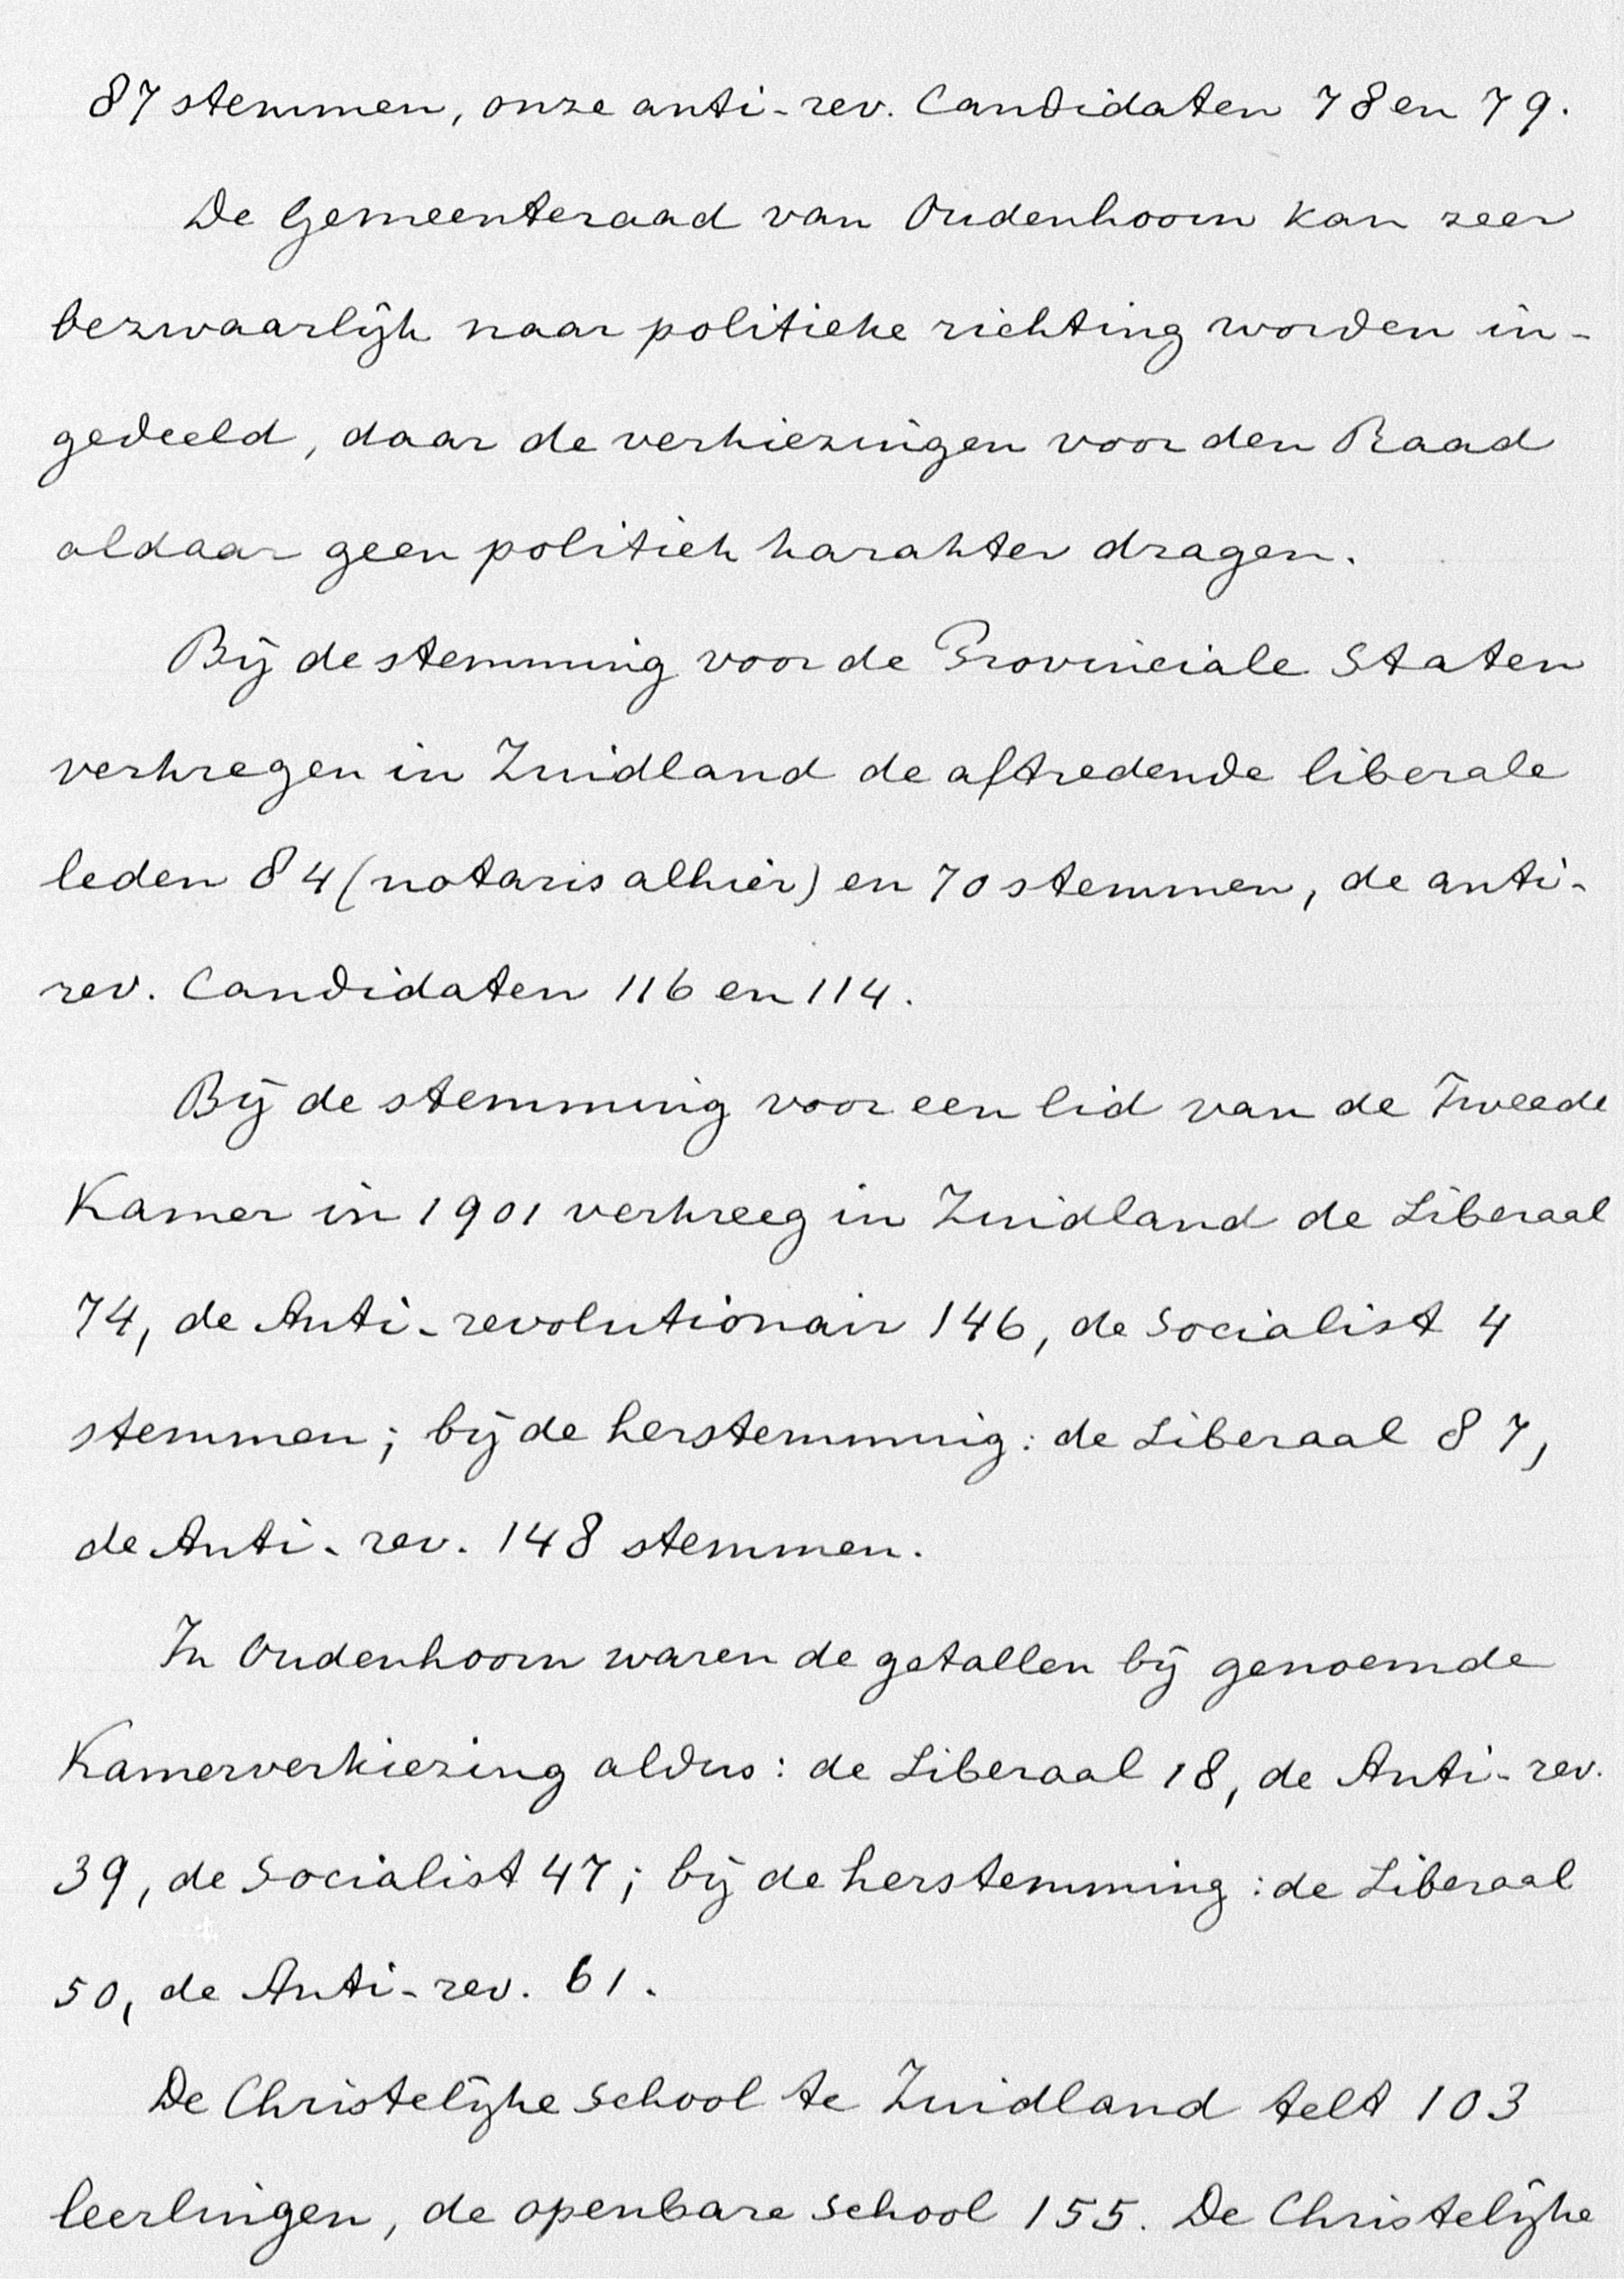 87 stemmen, onze anti-rev. Candidaten 78 en 79.
De Gemeenteraad van Oudenhoorn kan zeer
bezwaarlijk naar politieke richting worden in-
gedeeld, daar de verkiezingen voor den Raad
aldaar geen politiek karakter dragen.
Bij de stemming voor de Provinciale Staten
verkregen in Zuidland de aftredende liberale
leden 84 (notaris alhier) en 70 stemmen, de anti-
rev. Candidaten 116 en 114.
Bij de stemming voor een lid van de Tweede
Kamer in 1901 verkreeg in Zuidland de Liberaal
74, de Anti-revolutionair 146, de Socialist 4
stemmen; bij de herstemming: de Liberaal 87,
de Anti-rev. 148 stemmen.
In Oudenhoorn waren de getallen bij genoemde
Kamerverkiezing aldus: de Liberaal 18, de Anti-rev.
39, de Socialist 47; bij de herstemming: de Liberaal
50, de Anti-rev. 61.
De Christelijke School te Zuidland telt 103
leerlingen, de openbare School 155. De Christelijke